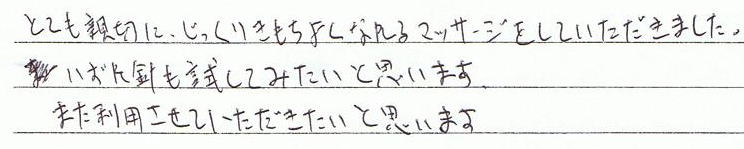 とても親切に、じっくりきもちよくなれるマッサージをしていただきました。
いずれ針も試してみたいと思います
また利用させていただきたいと思います